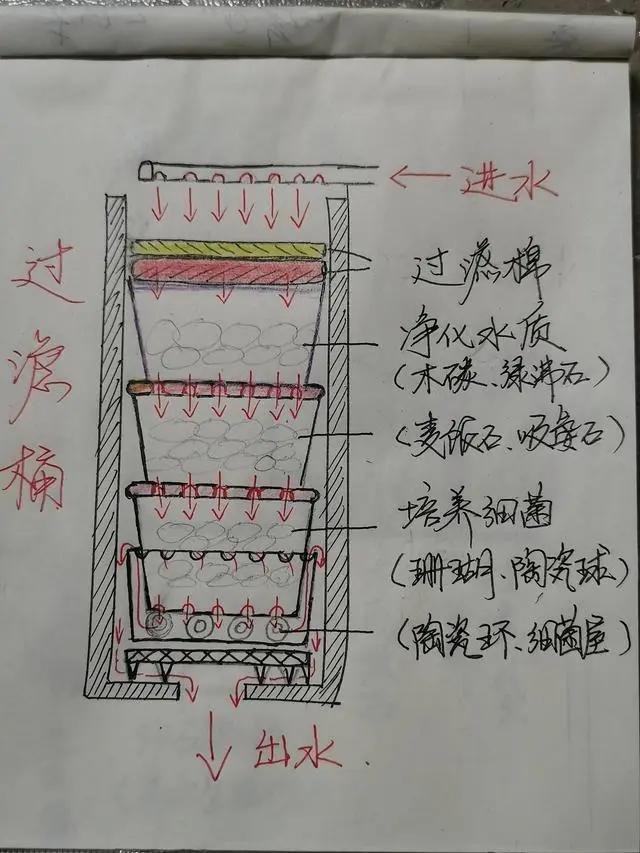 进水
过滤棉
净化水质
(木碳、绿沸石)
(麦饭石、吸氨石)
培养细菌
(珊瑚、陶瓷球)
(陶瓷环、细菌屋)
出水
过滤桶